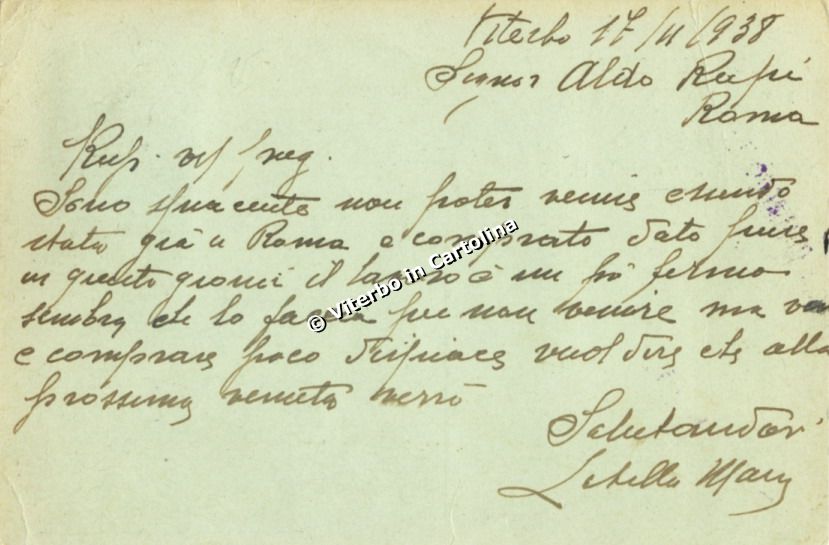 Viterbo 17/11/938
Signor Aldo
Roma
Sono spiacente non poter venire essendo
stata già a Roma e comprato dato pure
in questo giorni il lavoro è un pò fermo
sembra che lo faccia per non venire ma
e comprare poco dispiace vuol dire che alla
prossima venuta verrò
Salutandovi
© Viterbo in Cartolina